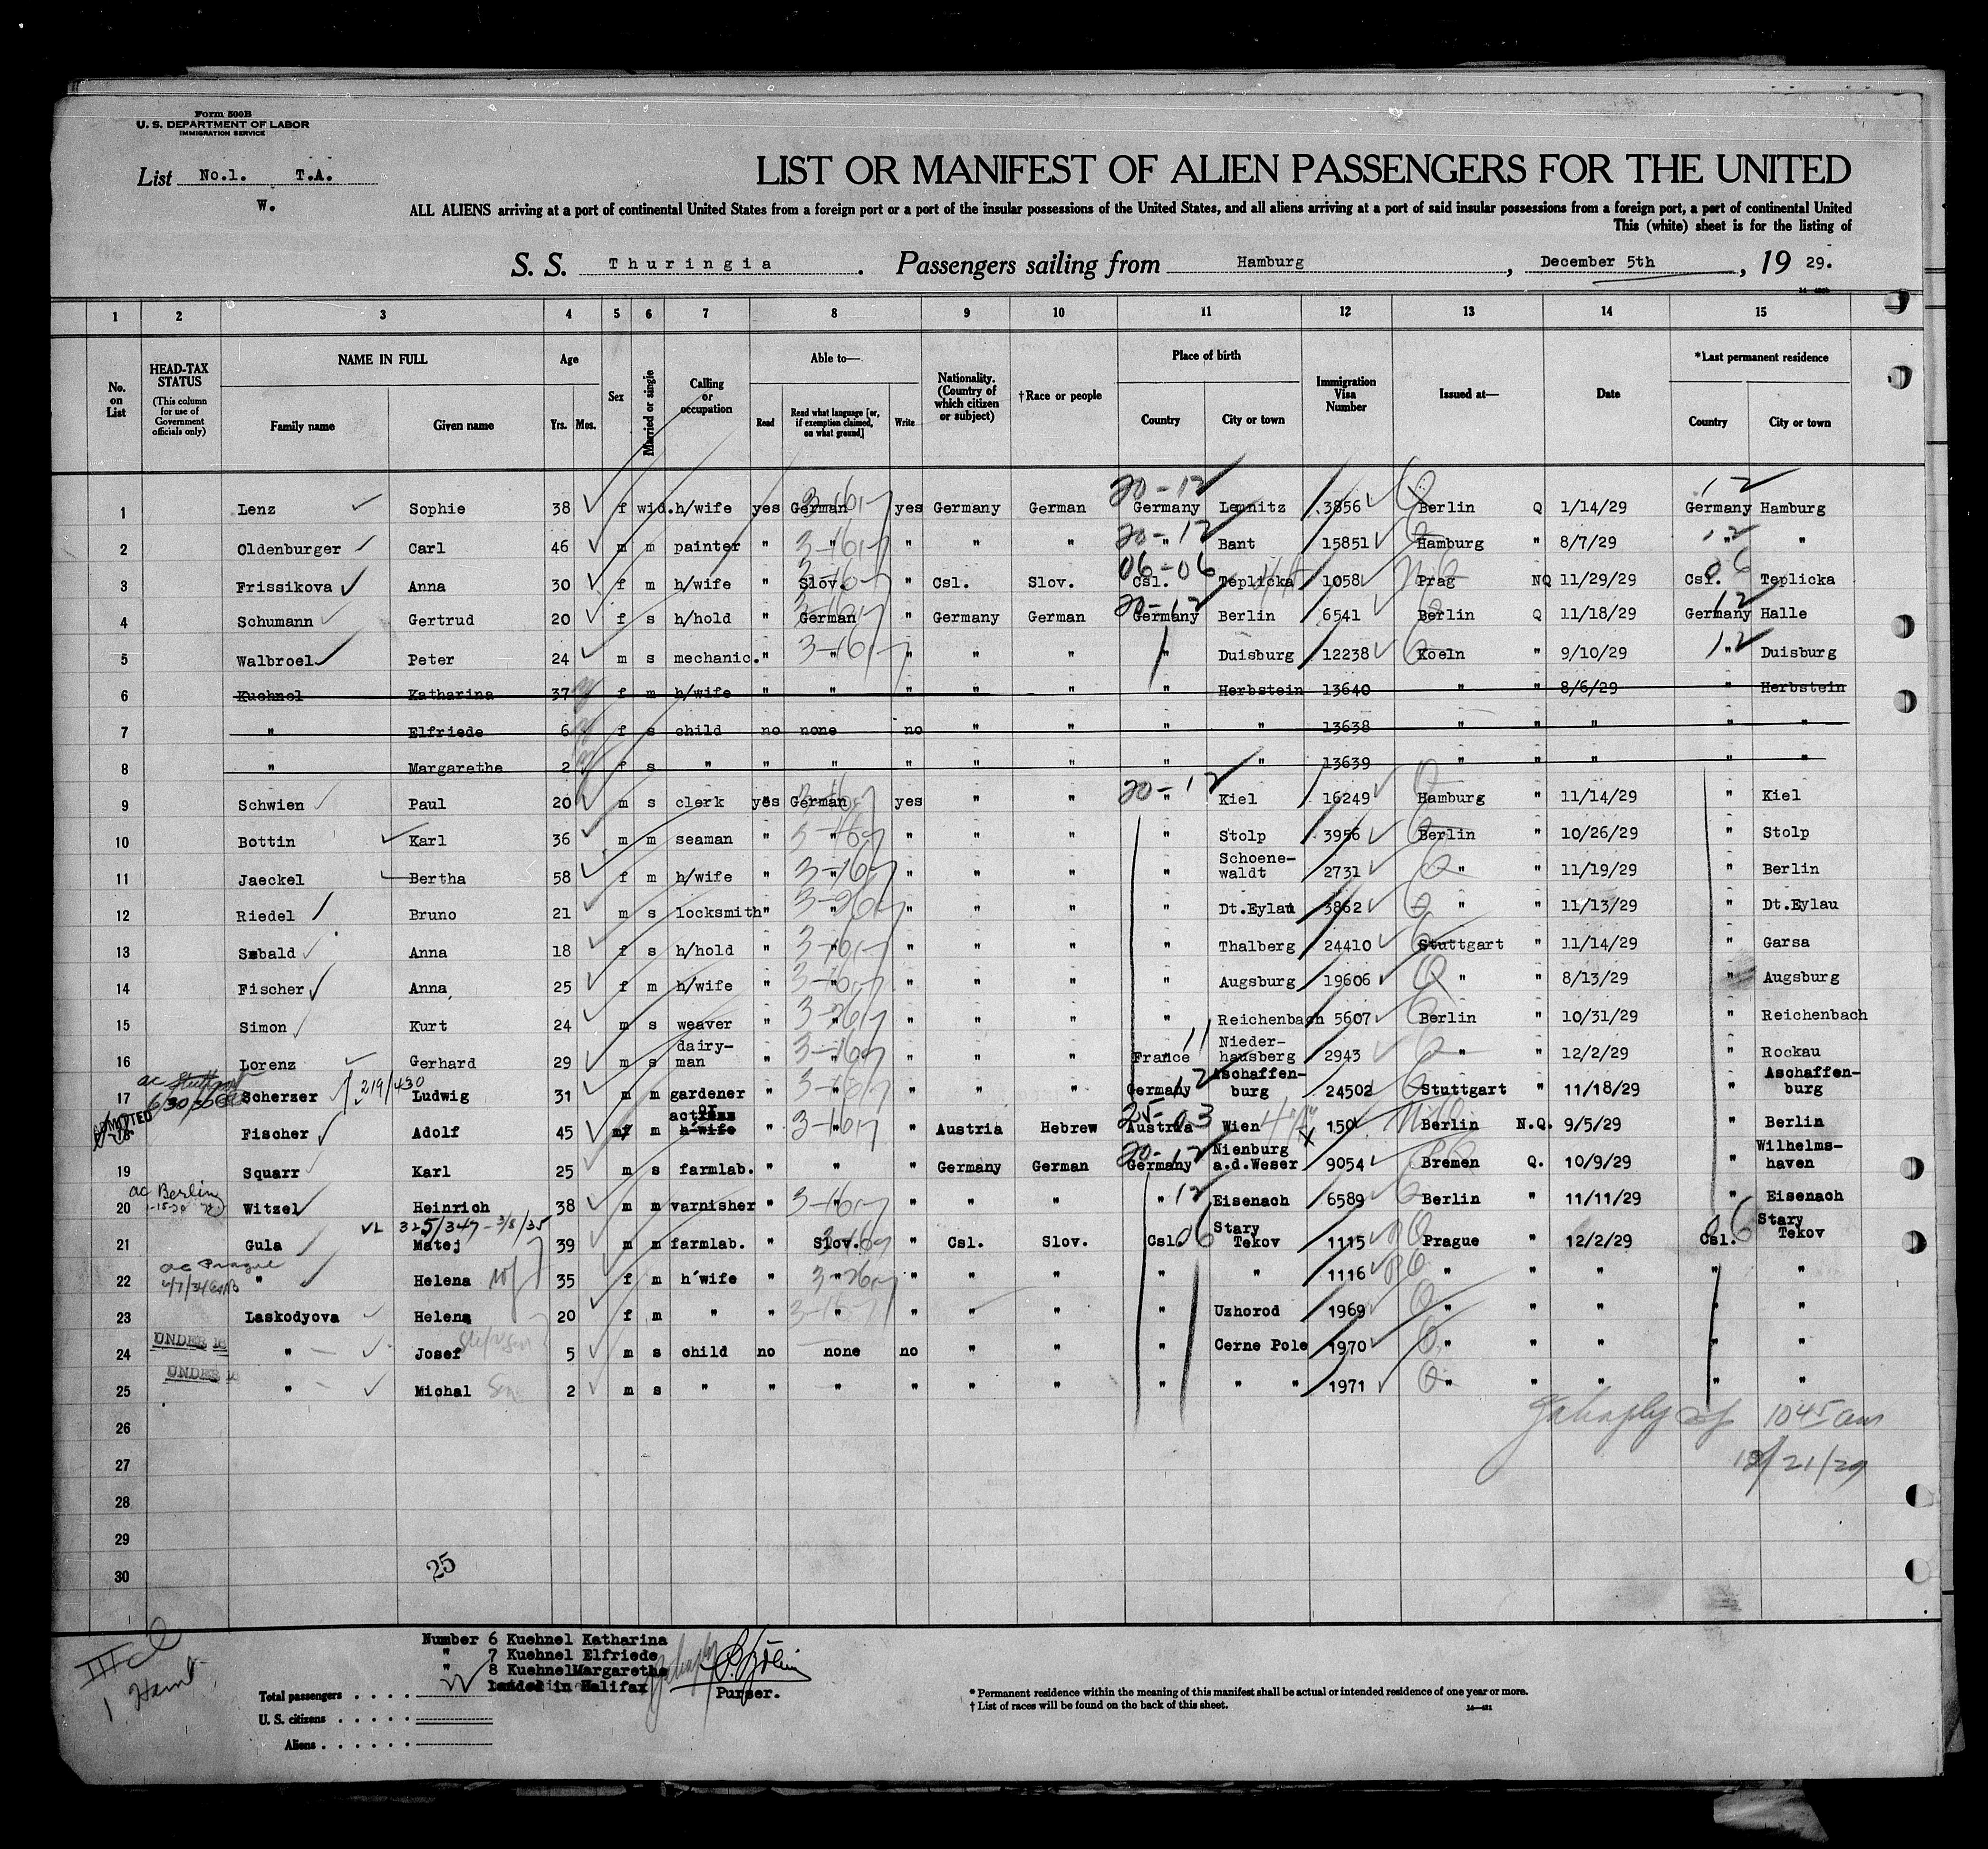 Form 500B
U. S. DEPARTMENT OF LABOR
IMMIGRATION SERVICE
List No.1. T.A.
W.
LIST OR MANIFEST OF ALIEN PASSENGERS FOR THE UNITED
ALL ALIENS arriving at a port of continental United States from a foreign port or a port of the insular possessions of the United States, and all aliens arriving at a port of said insular possessions from a foreign port, a port of continental United
This (white) sheet is for the listing of
S. S. Thuringia . Passengers sailing from Hamburg , December 5th , 19 29.
1 2 3 4 5 6 7 8 9 10 11 12 13 14 15
No. on List
HEAD-TAX STATUS (This column for use of Government officials only)
NAME IN FULL Family name Given name
Age Yrs. Mos.
Sex
Married or single
Calling or occupation
Able to— Read Read what language [or, if exemption claimed, on what ground] Write
Nationality. (Country of which citizen or subject)
†Race or people
Place of birth Country City or town
Immigration Visa Number
Issued at—
Date
*Last permanent residence Country City or town
1 Lenz Sophie 38 f wid. h/wife yes German yes Germany German Germany Lennitz 3856 Berlin Q 1/14/29 Germany Hamburg
2 Oldenburger Carl 46 m m painter " " " " " " Bant 15851 Hamburg " 8/7/29 " "
3 Frissikova Anna 30 f m h/wife " Slov. " Csl. Slov. Csl. Teplicka 1058 Prag NQ 11/29/29 Csl. Teplicka
4 Schumann Gertrud 20 f s h/hold " German " Germany German Germany Berlin 6541 Berlin Q 11/18/29 Germany Halle
5 Walbroel Peter 24 m s mechanic. " " " " " " Duisburg 12238 Koeln " 9/10/29 " Duisburg
6 Kuehnel Katharina 37 f m h/wife " " " " " " Herbstein 13640 " " 8/6/29 " Herbstein
7 " Elfriede 6 f s child no none no " " " " 13638 " " " " "
8 " Margarethe 2 f s " " " " " " " " 13639 " " " " "
9 Schwien Paul 20 m s clerk yes German yes " " " Kiel 16249 Hamburg " 11/14/29 " Kiel
10 Bottin Karl 36 m m seaman " " " " " " Stolp 3956 Berlin " 10/26/29 " Stolp
11 Jaeckel Bertha 58 f m h/wife " " " " " " Schoene-waldt 2731 " " 11/19/29 " Berlin
12 Riedel Bruno 21 m s locksmith " " " " " " Dt.Eylau 3862 " " 11/13/29 " Dt.Eylau
13 Sebald Anna 18 f s h/hold " " " " " " Thalberg 24410 Stuttgart " 11/14/29 " Garsa
14 Fischer Anna 25 f m h/wife " " " " " " Augsburg 19606 " " 8/13/29 " Augsburg
15 Simon Kurt 24 m s weaver " " " " " " Reichenbach 5607 Berlin " 10/31/29 " Reichenbach
16 Lorenz Gerhard 29 m s dairy-man " " " " " France Nieder-hausberg 2943 " " 12/2/29 " Rockau
17 Scherzer 219/430 Ludwig 31 m m gardener " " " " " Germany Aschaffen-burg 24502 Stuttgart " 11/18/29 " Aschaffen-burg
ADMITTED
18 Fischer Adolf 45 m m actor h'wife " " " Austria Hebrew Austria Wien 1501 Berlin N.Q. 9/5/29 " Berlin
19 Squarr Karl 25 m s farmlab. " " " Germany German Germany Nienburg a.d.Weser 9054 Bremen Q. 10/9/29 " Wilhelms-haven
ac Berlin
20 Witzel Heinrich 38 m m varnisher " " " " " " Eisenach 6589 Berlin " 11/11/29 " Eisenach
VL 325/347-3/8/35
21 Gula Matej 39 m m farmlab. " Slov. " Csl. Slov. Csl. Stary Tekov 1115 Prague " 12/2/29 Csl. Stary Tekov
ac Prague
22 " Helena 35 f m h'wife " " " " " " " 1116 " " " " "
23 Laskodyova Helena 20 f m " " " " " " " Uzhorod 1969 " " " " "
UNDER 16
24 " Josef 5 m s child no none no " " " Cerne Pole 1970 " " " " "
UNDER 16
25 " Michal Son 2 m s " " " " " " " " " 1971 " " " " "
26 1045 am
27 12/21/29
28
29
30
25
III cl
Number 6 Kuehnel Katharina
" 7 Kuehnel Elfriede
" 8 KuehnelMargarethe
landed in Halifax
Purser.
Total passengers . . . . 22
U. S. citizens . . . . .
Aliens . . . . . .
* Permanent residence within the meaning of this manifest shall be actual or intended residence of one year or more.
† List of races will be found on the back of this sheet.